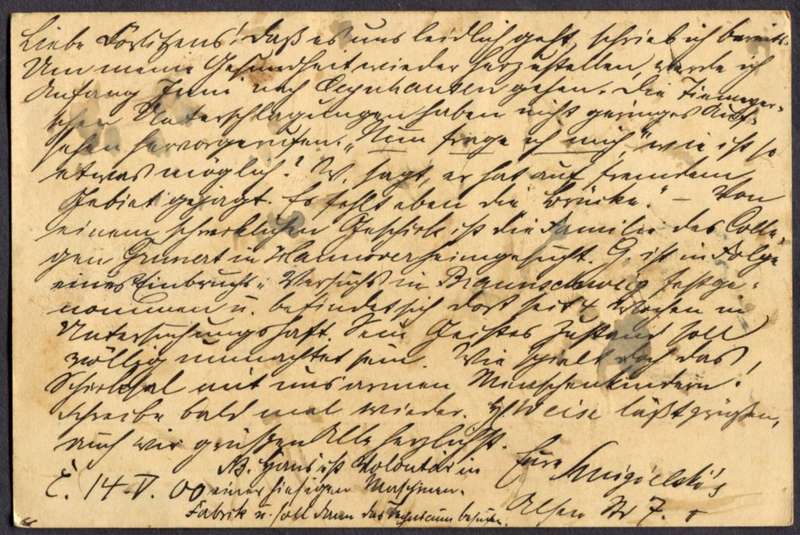 Liebe Görlitzens! Daß es uns leidlich geht, schrieb ich bereits.
Um meine Gesundheit wieder herzustellen, werde ich
Anfang Juni nach Oeynhausen gehen. Die
schen Unterschlagungen haben nicht geringes Auf-
sehen hervorgerufen. „Nun frage ich mich," wie ist so
etwas möglich? W. sagt, er hat auf fremdem
Gebiet gejagt. Es fehlt eben die Brücke." – Von
einem schrecklichen Geschick ist die Familie des Colle-
gen Grunert in Hannover heimgesucht. G. ist in Folge
eines Einbruchs-Versuchs in Braunschweig festge-
nommen u. befindet sich dort seit 4 Wochen in
Untersuchungshaft. Sein Geistes Zustand soll
völlig umnachtet sein. Wie spielt doch das
Schicksal mit uns armen Menschenkindern!
Schreibe bald mal wieder. läßt grüßen,
auch wir grüßen Alle herzlichst.
Eure
NB. Hans ist Volontär in
E. 14.V.00 einer hiesigen Maschinen-
Fabrik u. soll dann das Technicum besuchen.